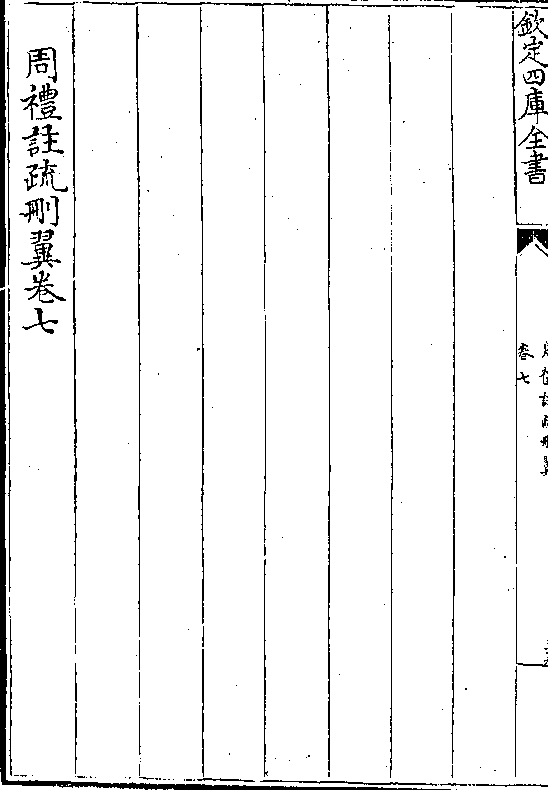 欽定四庫全書
周禮註疏刪翼
卷七
周禮註疏刪翼卷七